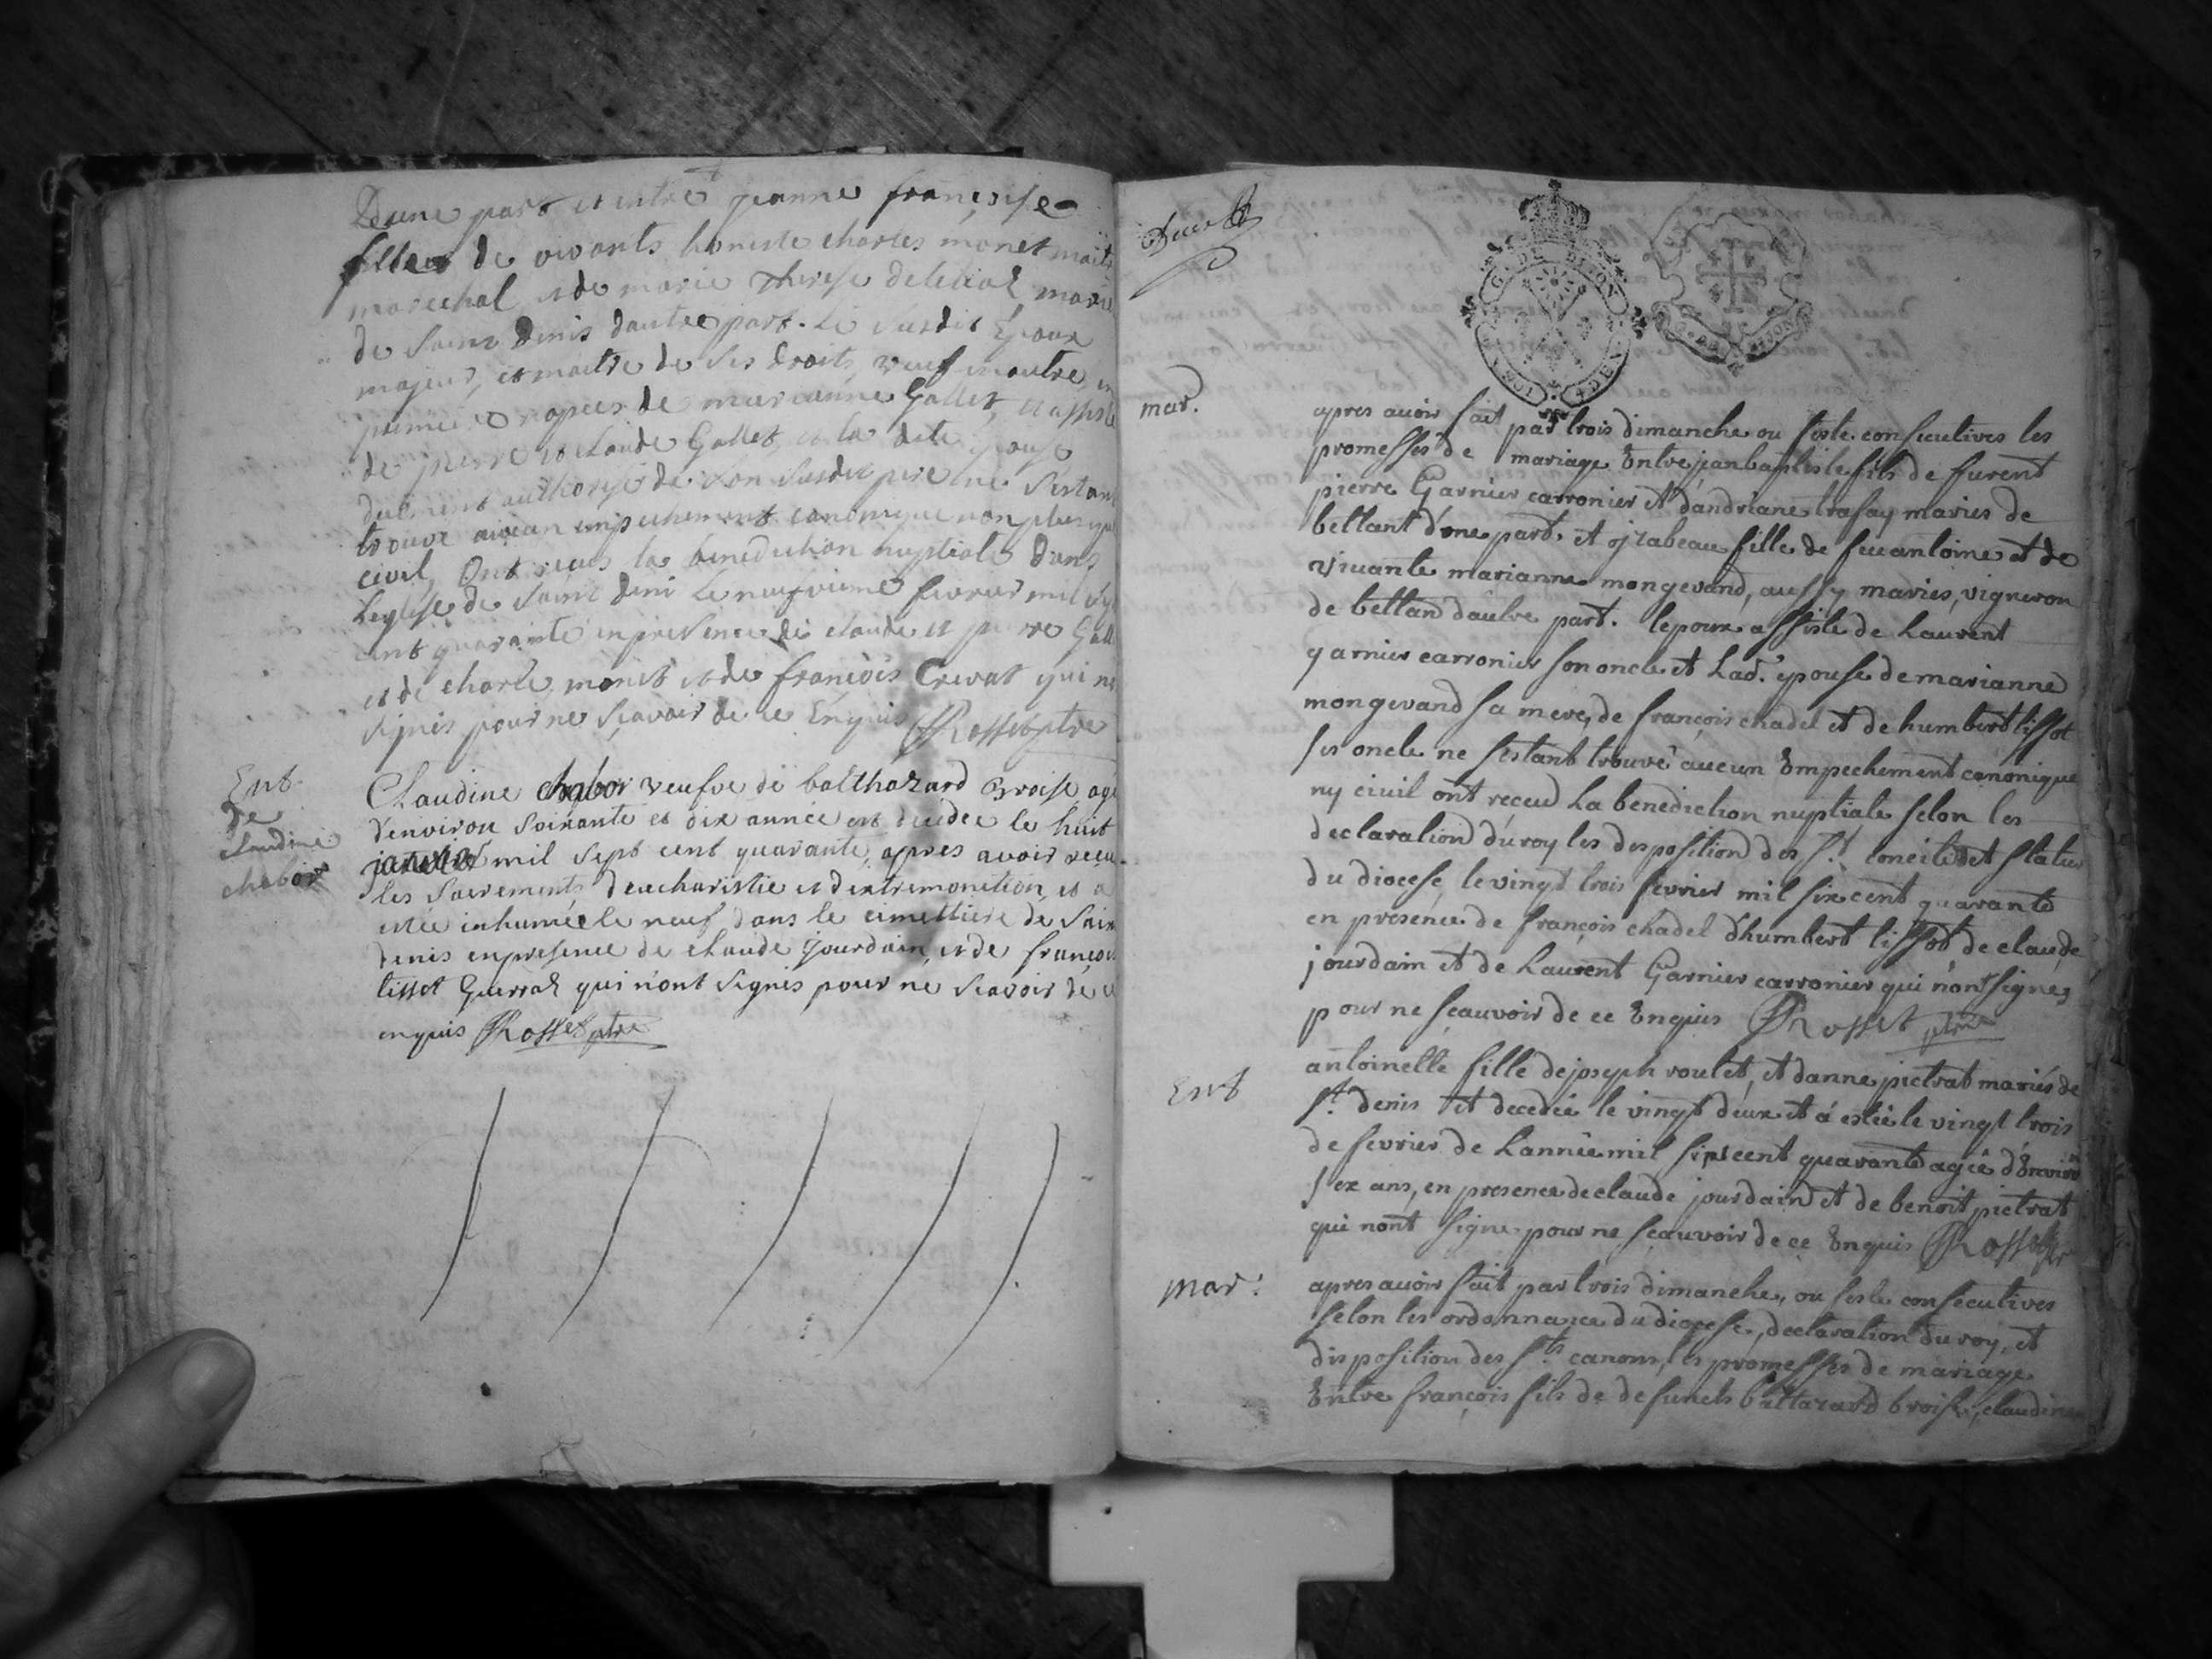 Dune part et entre jeanne françoise
fille de vivants honeste charles monet maitre
marechal et de marie therese
de Saint Denis dautre part. Le susdit Epoux
majeur, et maitre de ses droits, veuf en outre en
premiere nopces de marianne Gallet, et assisté
de pierre et claude Gallet, et la dite epouse
duement authorisée de son susdit pere ne sestant
trouvé aucun empechement canonique non plus que
civil, Ont receus la benediction nuptiale dans
Leglise de Saint Denis Le neufvieme fevrier mil sept
cent quarante en presence de claude et pierre Gallet
et de charle monet et de françois Crevat qui n
signés pour ne sçavoir de ce Enquis Rosset ptre
Ent
de
claudine
chabor
Claudine chabor veufve de balthazard Broise agé
denviron soixante et dix année est decedee le huit
janvier mil sept cent quarante, apres avoir receu
les sacrements deucharistie et dextremonction, et a
estée inhumée le neuf dans le cimettiere de Saint
denis en presence de claude jourdain, et de françois
tissot Guerraz qui n'ont signés pour ne scavoir de ce
enquis Rosset ptre
GEN. DE DIJON
mar.
apres avoir fait par trois dimanche ou feste consecutives les
promesses de mariage Entre jean baptiste fils de furent
pierre Garnier carronier et dandriane trafay mariés de
bettant d'une part, et ysabeau fille de feu antoine et de
vivante marianne mongevand, aussy mariés, vigneron
de bettan dautre part. lepoux assisté de Laurent
garnier carronier son oncle et Lad. epouse de marianne
mongevand sa mere, de françois chadel et de humbert tissot
ses oncle ne sestant trouvé aucun Empechement canonique
ny civil ont receud La benediction nuptiale selon les
declaration du roy les disposition des st. concile et status
du diocese le vingt trois fevrier mil six cent quarante
en presence de françois chadel d'humbert tissot de claude
jourdain et de Laurent Garnier carronier qui n'ont signes
pour ne sçauvoir de ce Enquis Rosset ptre
Ent
antoinette fille de joseph roulet, et danne pietrat mariés de
st. denis et decedée le vingt deux et á estée le vingt trois
de fevrier de Lannée mil sipt cent quarante agée d'Environ
sex ans, en presence de claude jourdain et de benoit pietrat
qui nont signe pour ne sçauvoir de ce Enquis Rosset ptre
mar.
apres avoir fait par trois dimanche, ou feste consecutives
selon les ordonnance du diocese, declaration du roy, et
disposition des sts canons, les promesses de mariage
Entre françois fils de defuncts baltazard broise, claudine